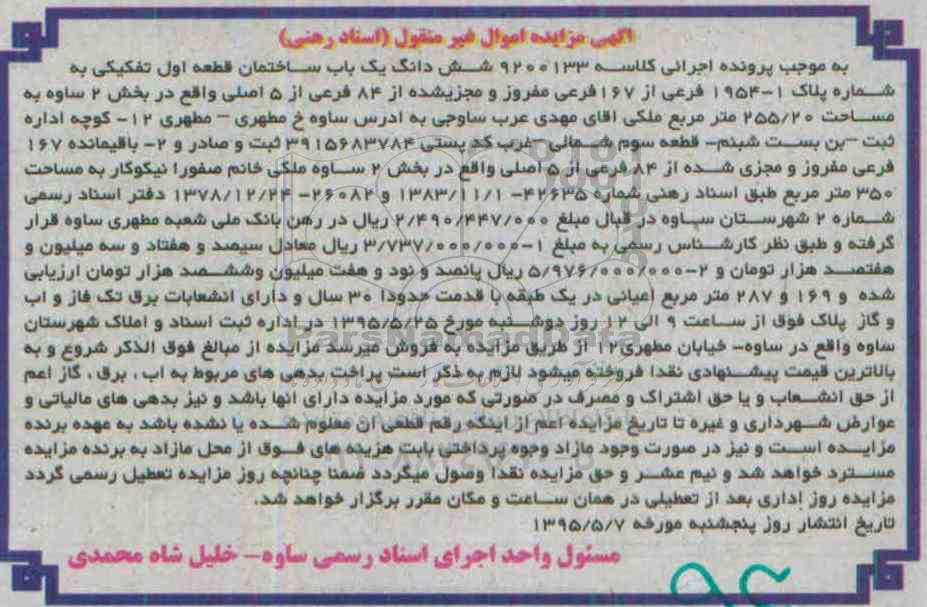 آگهی مزایده اموال غیر منقول (اسناد رهنی)
به موجب پرونده اجرائی کلاسه ۹۲۰۰۱۳۳ شش دانگ یک باب ساختمان قطعه اول تفکیکی به
شماره پلاک ۱-۱۹۵۴ فرعی از ۱۶۷ فرعی مفروز و مجزیشده از ۸۴ فرعی از ۵ اصلی واقع در بخش ۲ ساوه به
مساحت ۲۵۵/۲۰ متر مربع ملکی اقای مهدی عرب ساوجی به ادرس ساوه خ مطهری – مطهری ۱۲- کوچه اداره
ثبت –بن بست شبنم– قطعه سوم شمالی –غرب کد پستی ۳۹۱۵۶۸۳۷۸۴ ثبت و صادر و ۲- باقیمانده ۱۶۷
فرعی مفروز و مجزی شده از ۸۴ فرعی از ۵ اصلی واقع در بخش ۲ ساوه ملکی خانم صفورا نیکوکار به مساحت
۳۵۰ متر مربع طبق اسناد رهنی شماره ۴۲۶۳۵- ۱۳۸۳/۱۱/۱ و ۲۶۰۸۲- ۱۳۷۸/۱۲/۲۴ دفتر اسناد رسمی
شماره ۲ شهرستان ساوه در قبال مبلغ ۲/۴۹۰/۴۴۷/۰۰۰ ریال در رهن بانک ملی شعبه مطهری ساوه قرار
گرفته و طبق نظر کارشناس رسمی به مبلغ ۱-۳/۷۳۷/۰۰۰/۰۰۰ ریال معادل سیصد و هفتاد و سه میلیون و
هفتصد هزار تومان و ۲-۵/۹۷۶/۰۰۰/۰۰۰ ریال پانصد و نود و هفت میلیون وششصد هزار تومان ارزیابی
شده و ۱۶۹ و ۲۸۷ متر مربع اعیانی در یک طبقه با قدمت حدودا ۳۰ سال و دارای انشعابات برق تک فاز و اب
و گاز پلاک فوق از ساعت ۹ الی ۱۲ روز دوشنبه مورخ ۱۳۹۵/۵/۲۵ در اداره ثبت اسناد و املاک شهرستان
ساوه واقع در ساوه- خیابان مطهری۱۲ از طریق مزایده به فروش میرسد مزایده از مبالغ فوق الذکر شروع و به
بالاترین قیمت پیشنهادی نقدا فروخته میشود لازم به ذکر است پراخت بدهی های مربوط به اب ، برق ، گاز اعم
از حق انشعاب و یا حق اشتراک و مصرف در صورتی که مورد مزایده دارای انها باشد و نیز بدهی های مالیاتی و
عوارض شهرداری و غیره تا تاریخ مزایده اعم از اینکه رقم قطعی ان معلوم شده یا نشده باشد به عهده برنده
مزایده است و نیز در صورت وجود مازاد وجوه پرداختی بابت هزینه های فوق از محل مازاد به برنده مزایده
مسترد خواهد شد و نیم عشر و حق مزایده نقدا وصول میگردد ضمنا چنانچه روز مزایده تعطیل رسمی گردد
مزایده روز إداری بعد از تعطیلی در همان ساعت و مکان مقرر برگزار خواهد شد.
تاریخ انتشار روز پنجشنبه مورخه ۱۳۹۵/۵/۷
مسئول واحد اجرای اسناد رسمی ساوه– خلیل شاه محمدی
ParsNamadData